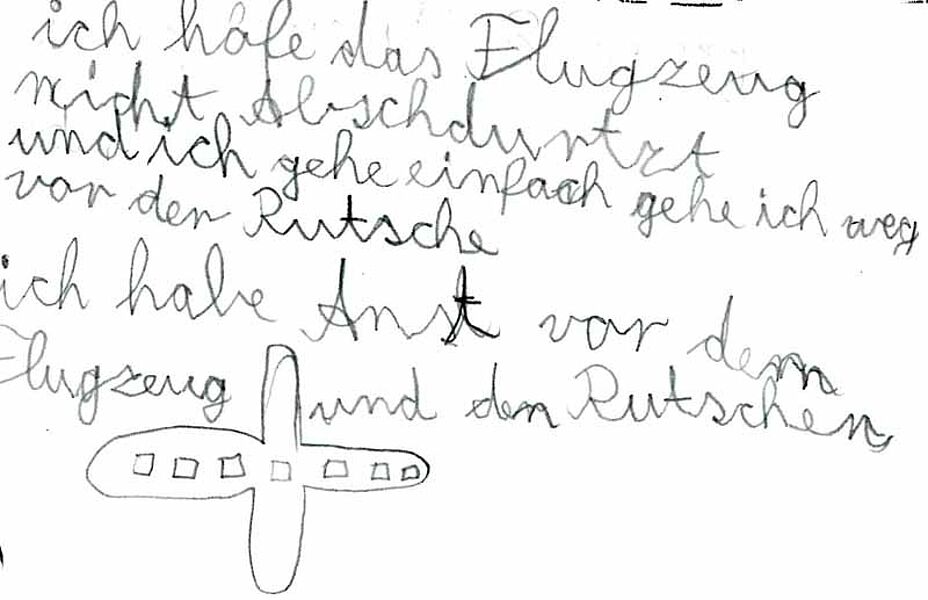 ich hofe das Flugzeug
nicht Abschdurtzt
und ich gehe einfach gehe ich weg
vor der Rutsche
ich habe Anst vor dem
Flugzeug und den Rutschen